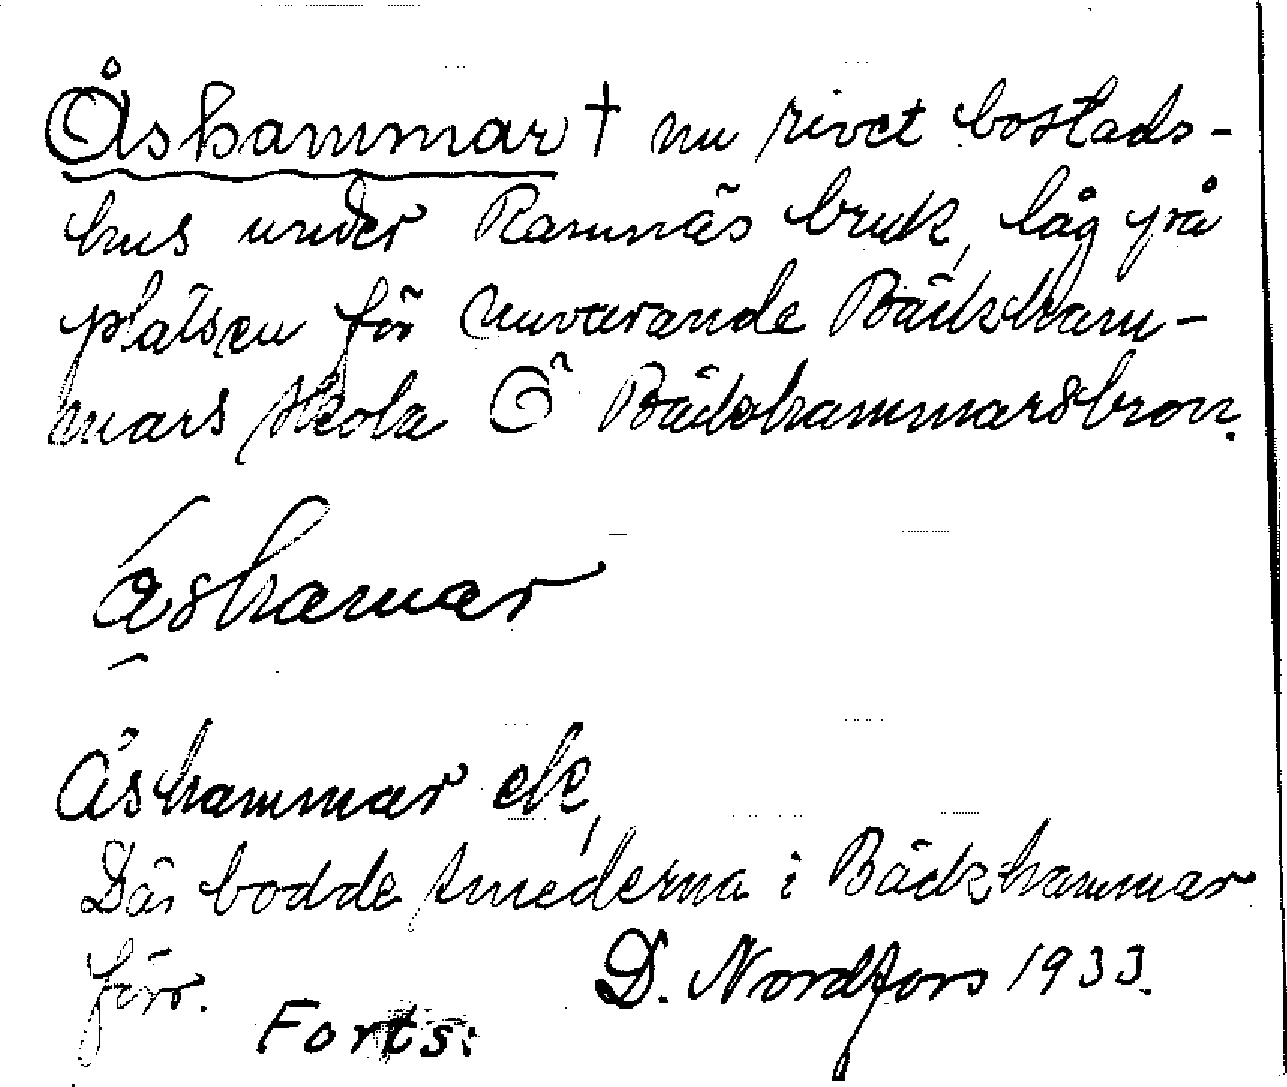 Åshammar † nu rivet bostads-
hus under Ramnäs bruk, låg på
platsen för nuvarande Bäckham-
mars skola Ö Bäckhammarsbron.
åshamar
Åshammar etc,
Där bodde smederna i Bäckhammar
förr. D. Nordfors 1933.
Forts: